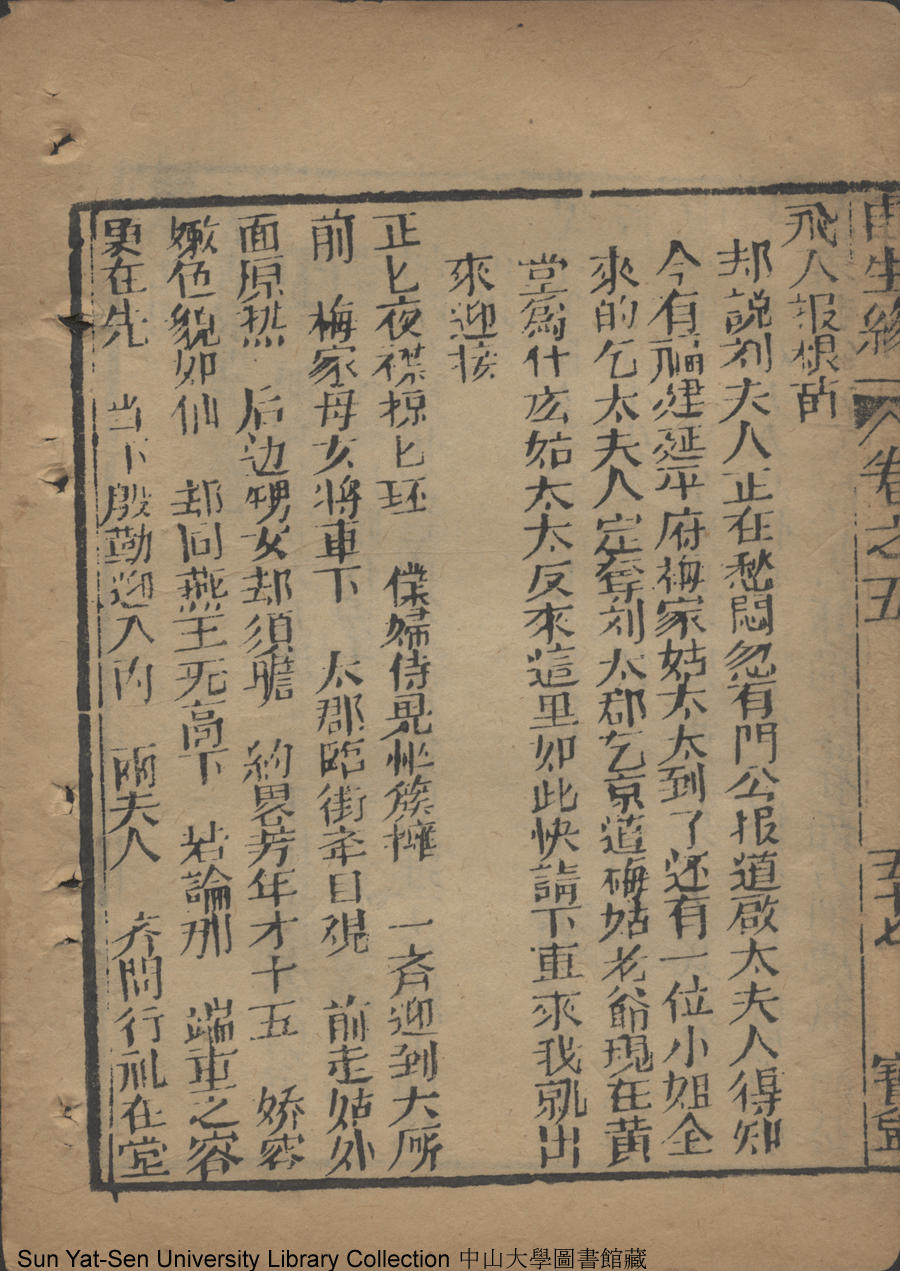 再生緣 卷之五 五十七 寶
飛人报根苗
却説刘夫人正在愁悶忽有門公报道啟太夫人得知
今有福建延平府梅家姑太太到了还有一位小姐仝
來的乞太夫人定夺刘太郡乞京道梅姑老爺現在黄
堂爲什庅姑太太反來這里如此快請下車來我就出
來迎接
正匕夜襟掠匕环 僕婦侍児坐簇擁 一斉迎到大所
前 梅家母女將車下 太郡臨街年目覌 前走姑外
面原热 后边甥女却須瞻 約畧芳年才十五 娇容
嫩色貌如仙 却同燕玉死高下 若論那 端重之容
更在先 当下殷勤迎入内 兩夫人 斉問行礼在堂
Sun Yat-Sen University Library Collection 中山大學圖書館藏